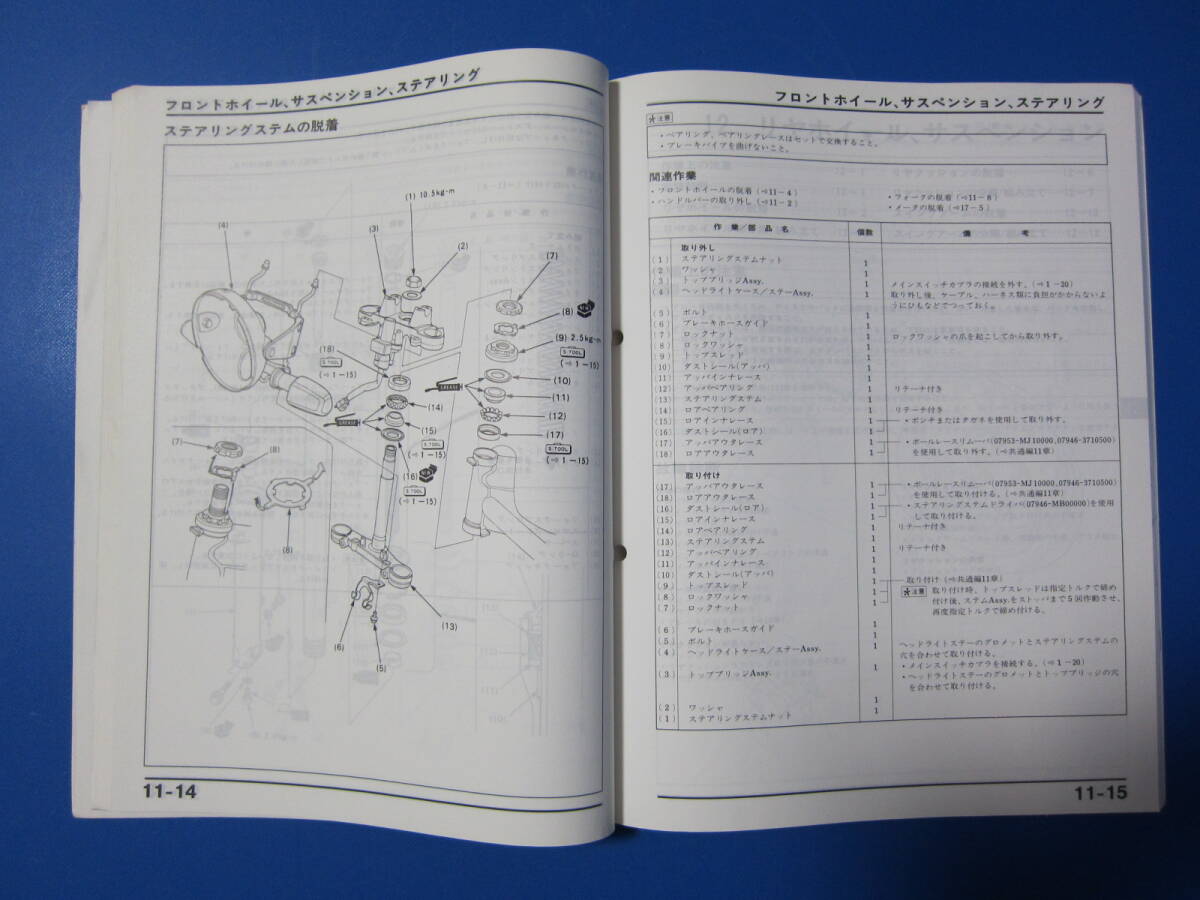 フロントホイール、サスペンション、ステアリング
ステアリングステムの脱着
(1) 10.5kg-m
(4)
(3)
(2)
(7)
(8)
(9) 2.5kg-m
S.TOOL
(⇨1-15)
(18)
S.TOOL
(⇨1-15)
(10)
GREASE
(11)
(14)
(12)
GREASE
(15)
(17)
S.TOOL
(⇨1-15)
S.TOOL
(⇨1-15)
(7)
(8)
(16)
S.TOOL
(⇨1-15)
(8)
(13)
(6)
(5)
11-14
フロントホイール、サスペンション、ステアリング
注意
・ベアリング、ベアリングレースはセットで交換すること。
・ブレーキパイプを曲げないこと。
関連作業
・フロントホイールの脱着 (⇨11-4)
・ハンドルバーの取り外し (⇨11-2)
・フォークの脱着 (⇨11-8)
・メータの脱着 (⇨17-5)
作業/部品名 個数 備考
取り外し
(1) ステアリングステムナット 1
(2) ワッシャ 1
(3) トップブリッジAssy. 1 メインスイッチカプラの接続を外す。(⇨1-20)
(4) ヘッドライトケース/ステーAssy. 1 取り外し後、ケーブル、ハーネス類に負担がかからないよ
うにひもなどでつっておく。
(5) ボルト 1
(6) ブレーキホースガイド 1
(7) ロックナット 1 ロックワッシャの爪を起こしてから取り外す。
(8) ロックワッシャ 1
(9) トップスレッド 1
(10) ダストシール(アッパ) 1
(11) アッパインナレース 1
(12) アッパベアリング 1 リテーナ付き
(13) ステアリングステム 1
(14) ロアベアリング 1 リテーナ付き
(15) ロアインナレース 1 ・ポンチまたはタガネを使用して取り外す。
(16) ダストシール(ロア) 1
(17) アッパアウタレース 1 ・ボールレースリムーバ(07953-MJ10000、07946-3710500)
(18) ロアアウタレース 1 を使用して取り外す。(⇨共通編11章)
取り付け
(17) アッパアウタレース 1 ・ボールレースリムーバ(07953-MJ10000、07946-3710500)
(18) ロアアウタレース 1 を使用して取り付ける。(⇨共通編11章)
(16) ダストシール(ロア) 1 ・ステアリングステムドライバ(07946-MB00000)を使用
(15) ロアインナレース 1 して取り付ける。
(14) ロアベアリング 1 リテーナ付き
(13) ステアリングステム 1
(12) アッパベアリング 1 リテーナ付き
(11) アッパインナレース 1
(10) ダストシール(アッパ) 1
(9) トップスレッド 1 取り付け(⇨共通編11章)
(8) ロックワッシャ 1 注意 取り付け時、トップスレッドは指定トルクで締め
(7) ロックナット 1 付け後、ステムAssy.をストッパまで5回作動させ、
再度指定トルクで締め付ける。
(6) ブレーキホースガイド 1
(5) ボルト 1
(4) ヘッドライトケース/ステーAssy. 1 ヘッドライトステーのグロメットとステアリングステムの
穴を合わせて取り付ける。
(3) トップブリッジAssy. 1 ・メインスイッチカプラを接続する。(⇨1-20)
・ヘッドライトステーのグロメットとトップブリッジの穴
を合わせて取り付ける。
(2) ワッシャ 1
(1) ステアリングステムナット 1
11-15